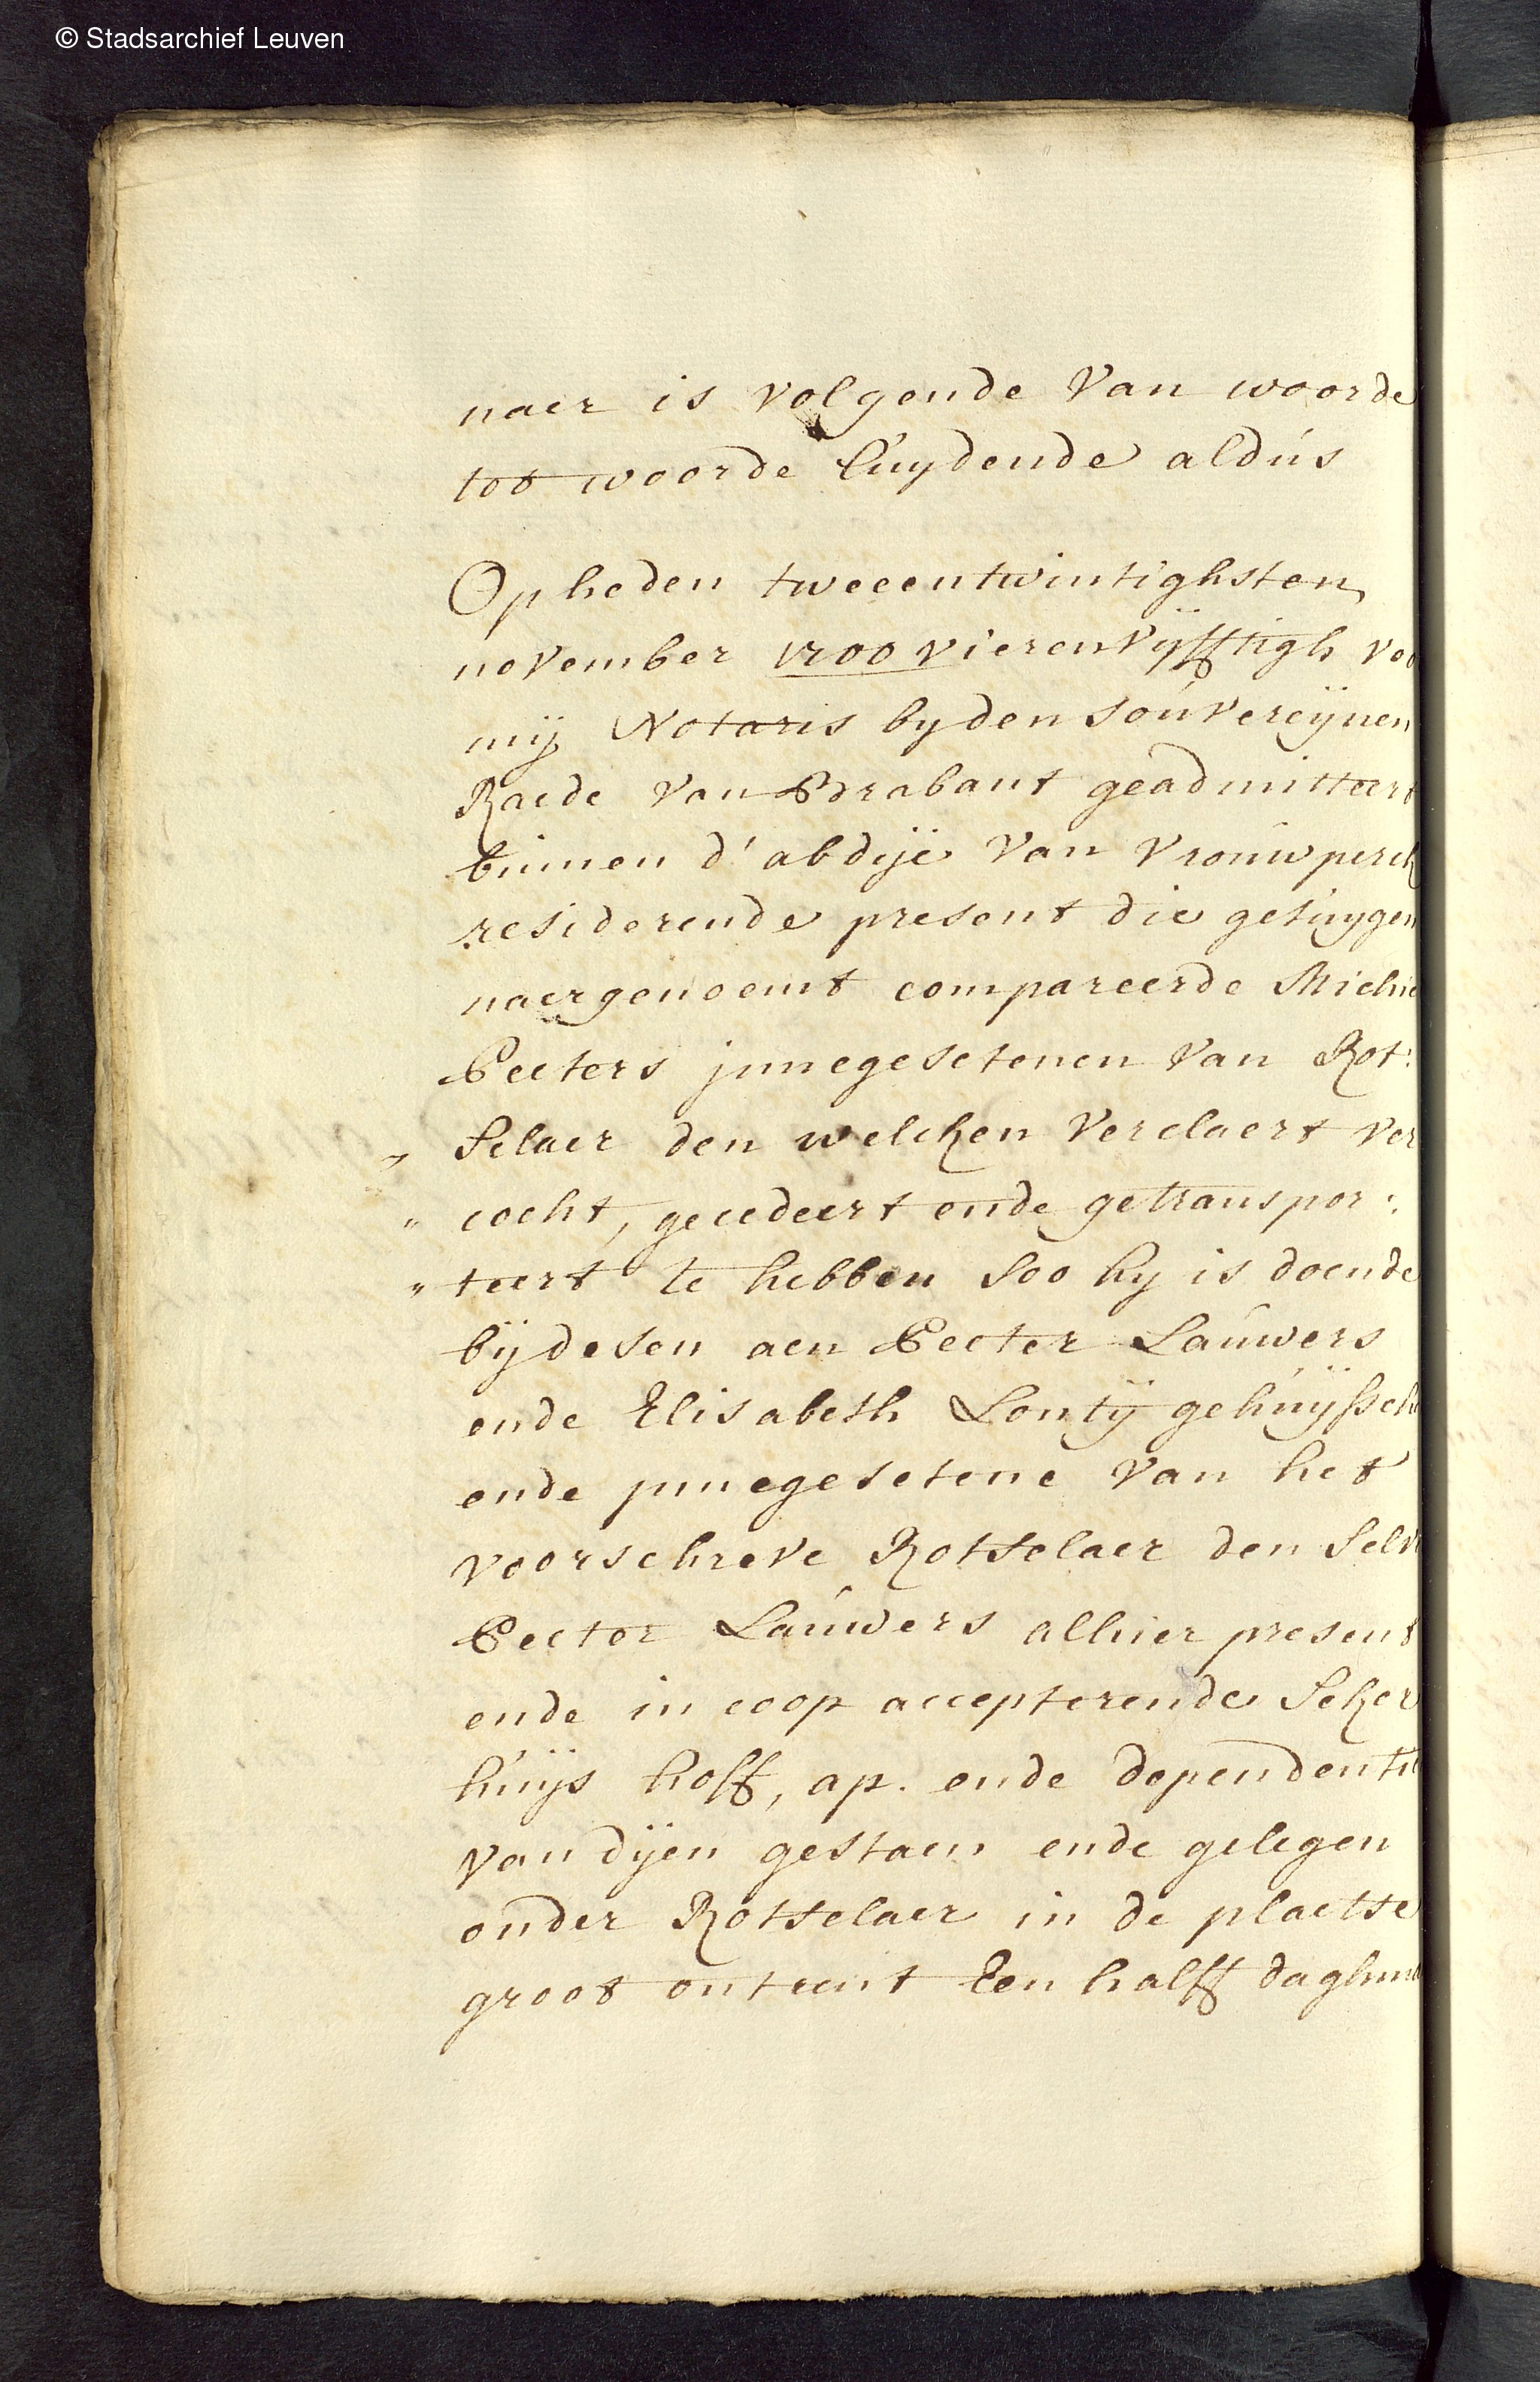 © Stadsarchief Leuven
naer is volgende van woorde
tot woorde luydende aldus
Op heden tweeentwintighsten
november 1700 vierenvijfftigh voo
mij Notaris by den souvereijnen
Raede van Brabant geadmitteert
binnen d'abdije van vrouwperck
residerende present die getuygen
naergenoemt compareerde Michie
Peeters jnnegesetenen van Rot:
selaer den welcken verclaert ver
" cocht, gecedeert ende getranspor:
" teert te hebben soo hy is doende
bij desen aen Peeter Lauwers
ende Elisabeth Lontij gehuijssch
ende jnnegesetene van het
voorschreve Rotselaer den selv
Peeter Lauwers alhier present
ende in coop accepterende seker
huijs hoff, ap. ende dependentie
van dijen gestaen ende gelegen
onder Rotselaer in de plaetse
groot ontrent Een halff daghm